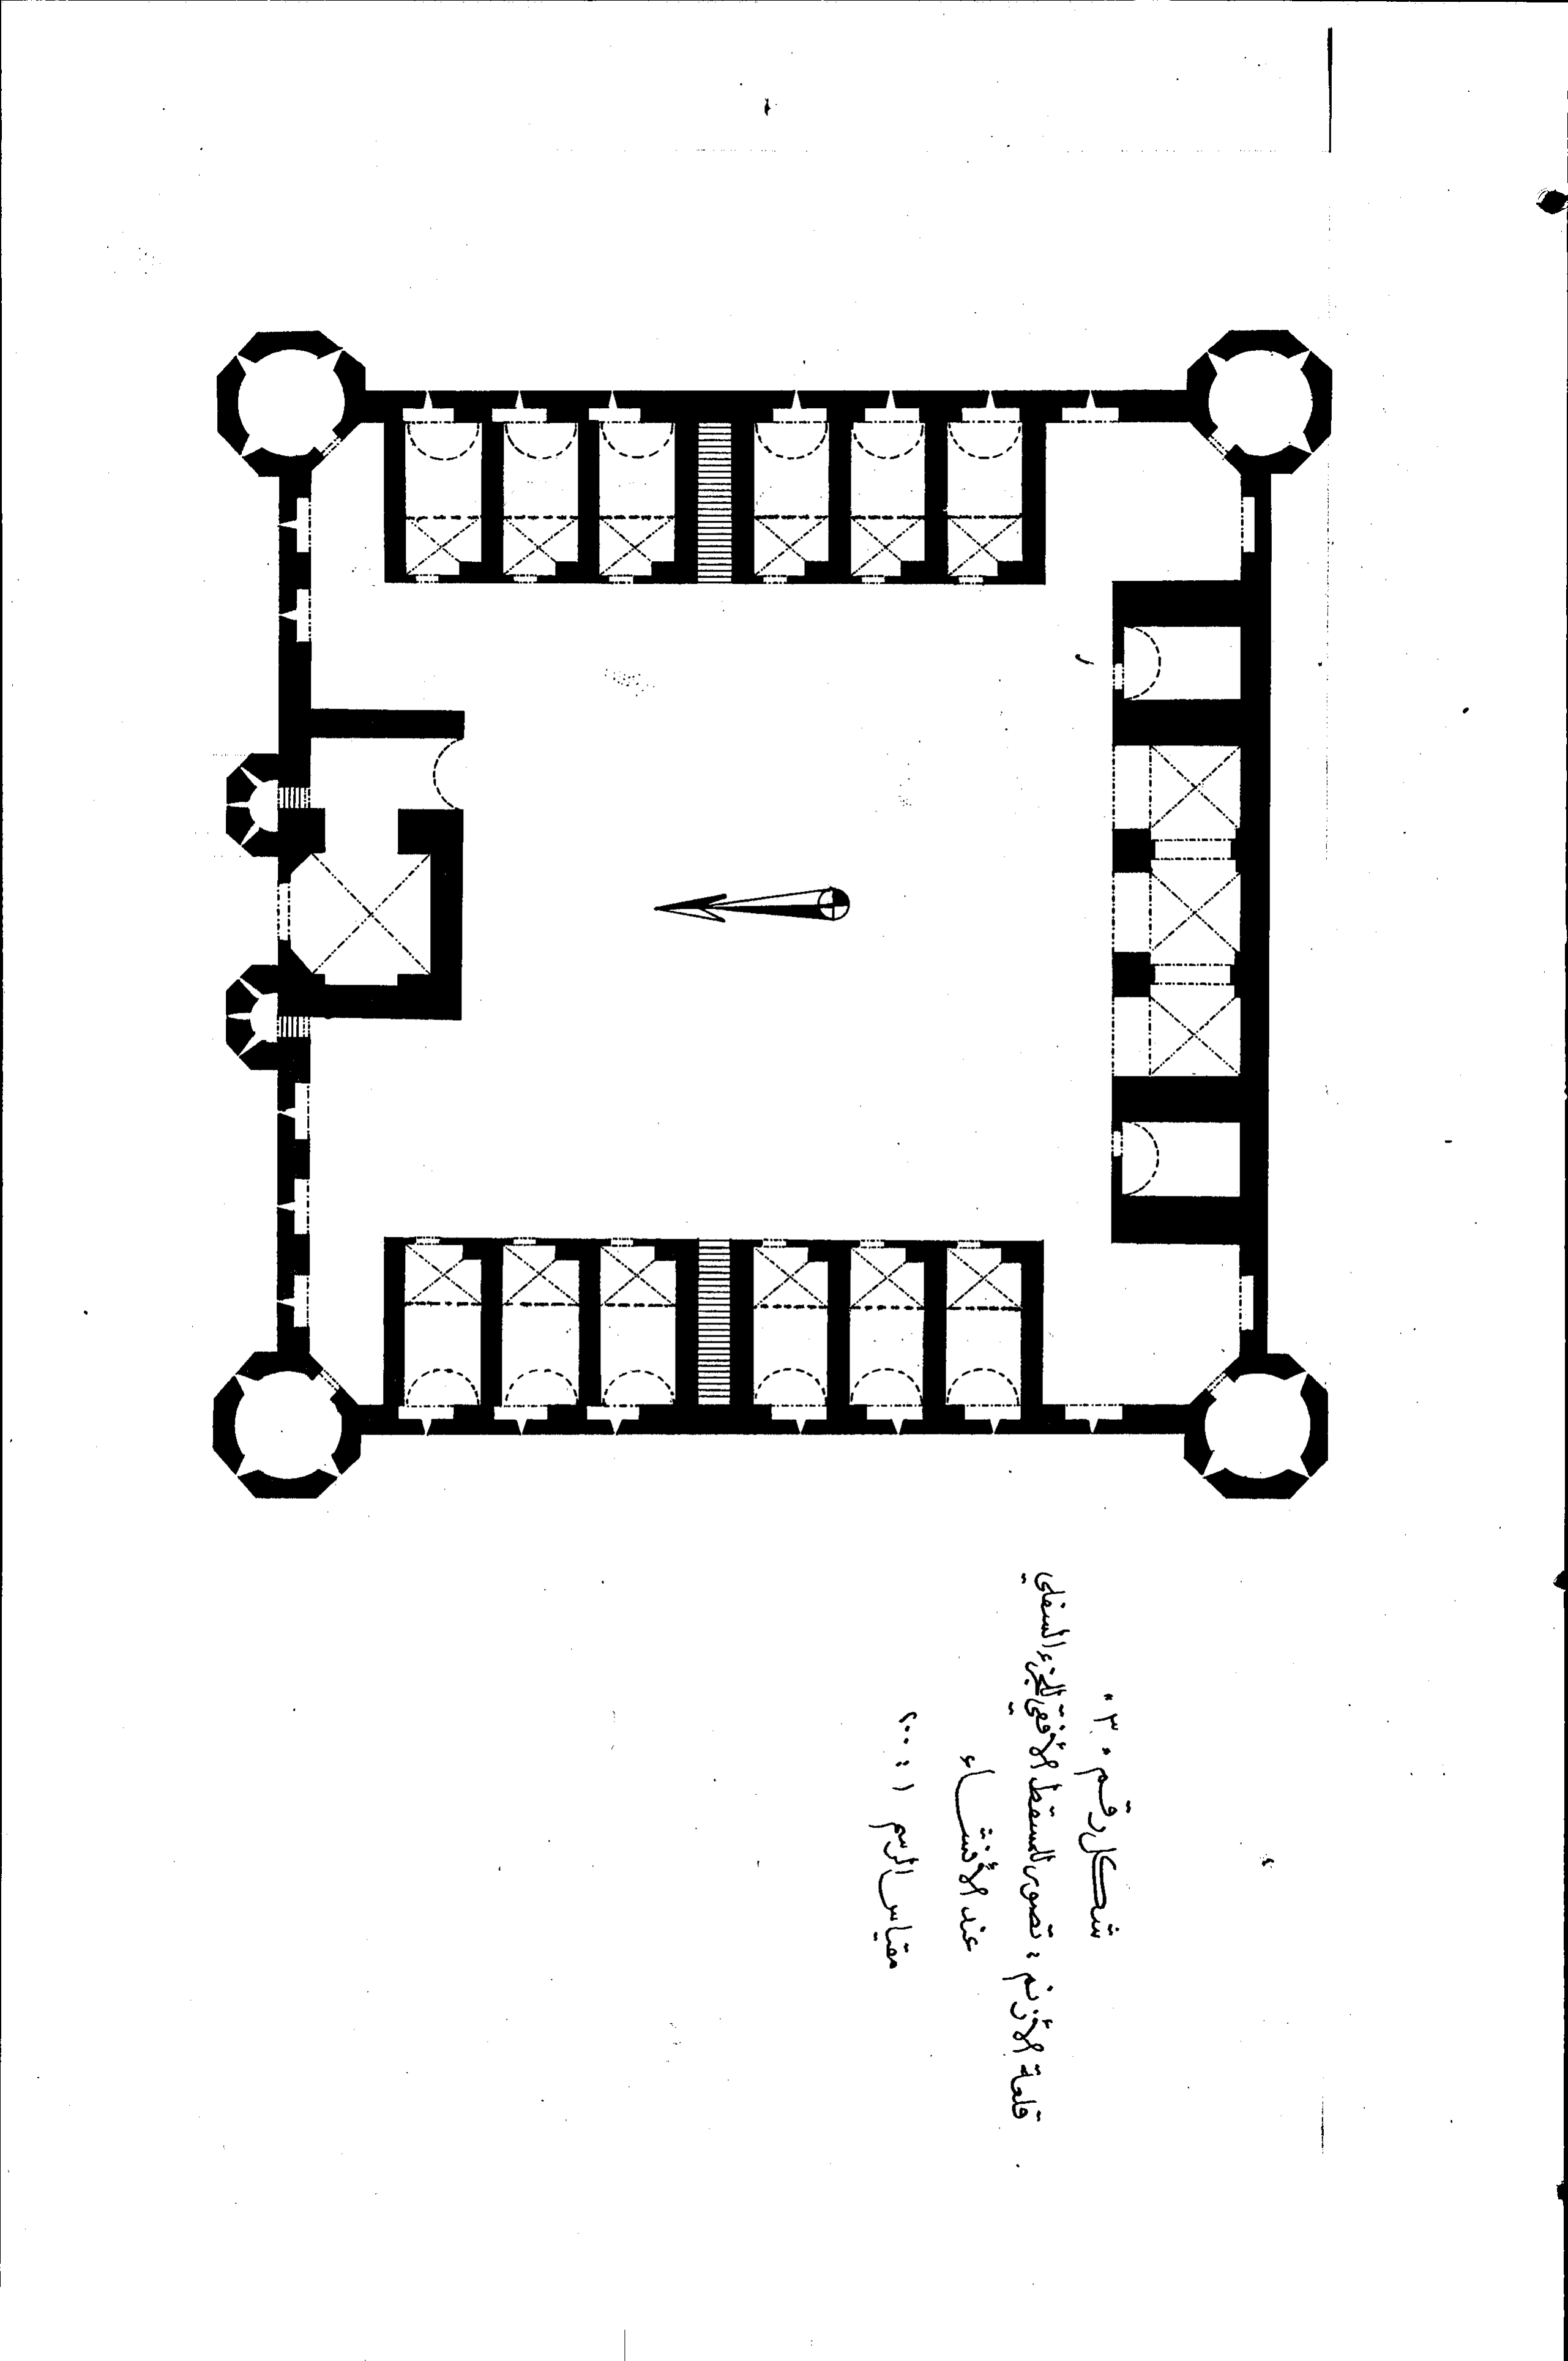 شكل رقم ٣٠
قلعة الأزنم : تصور للمسقط الأفقي للجزء السفلي
عند الأنشاء
مقياس الرسم ١ : ٢٠٠